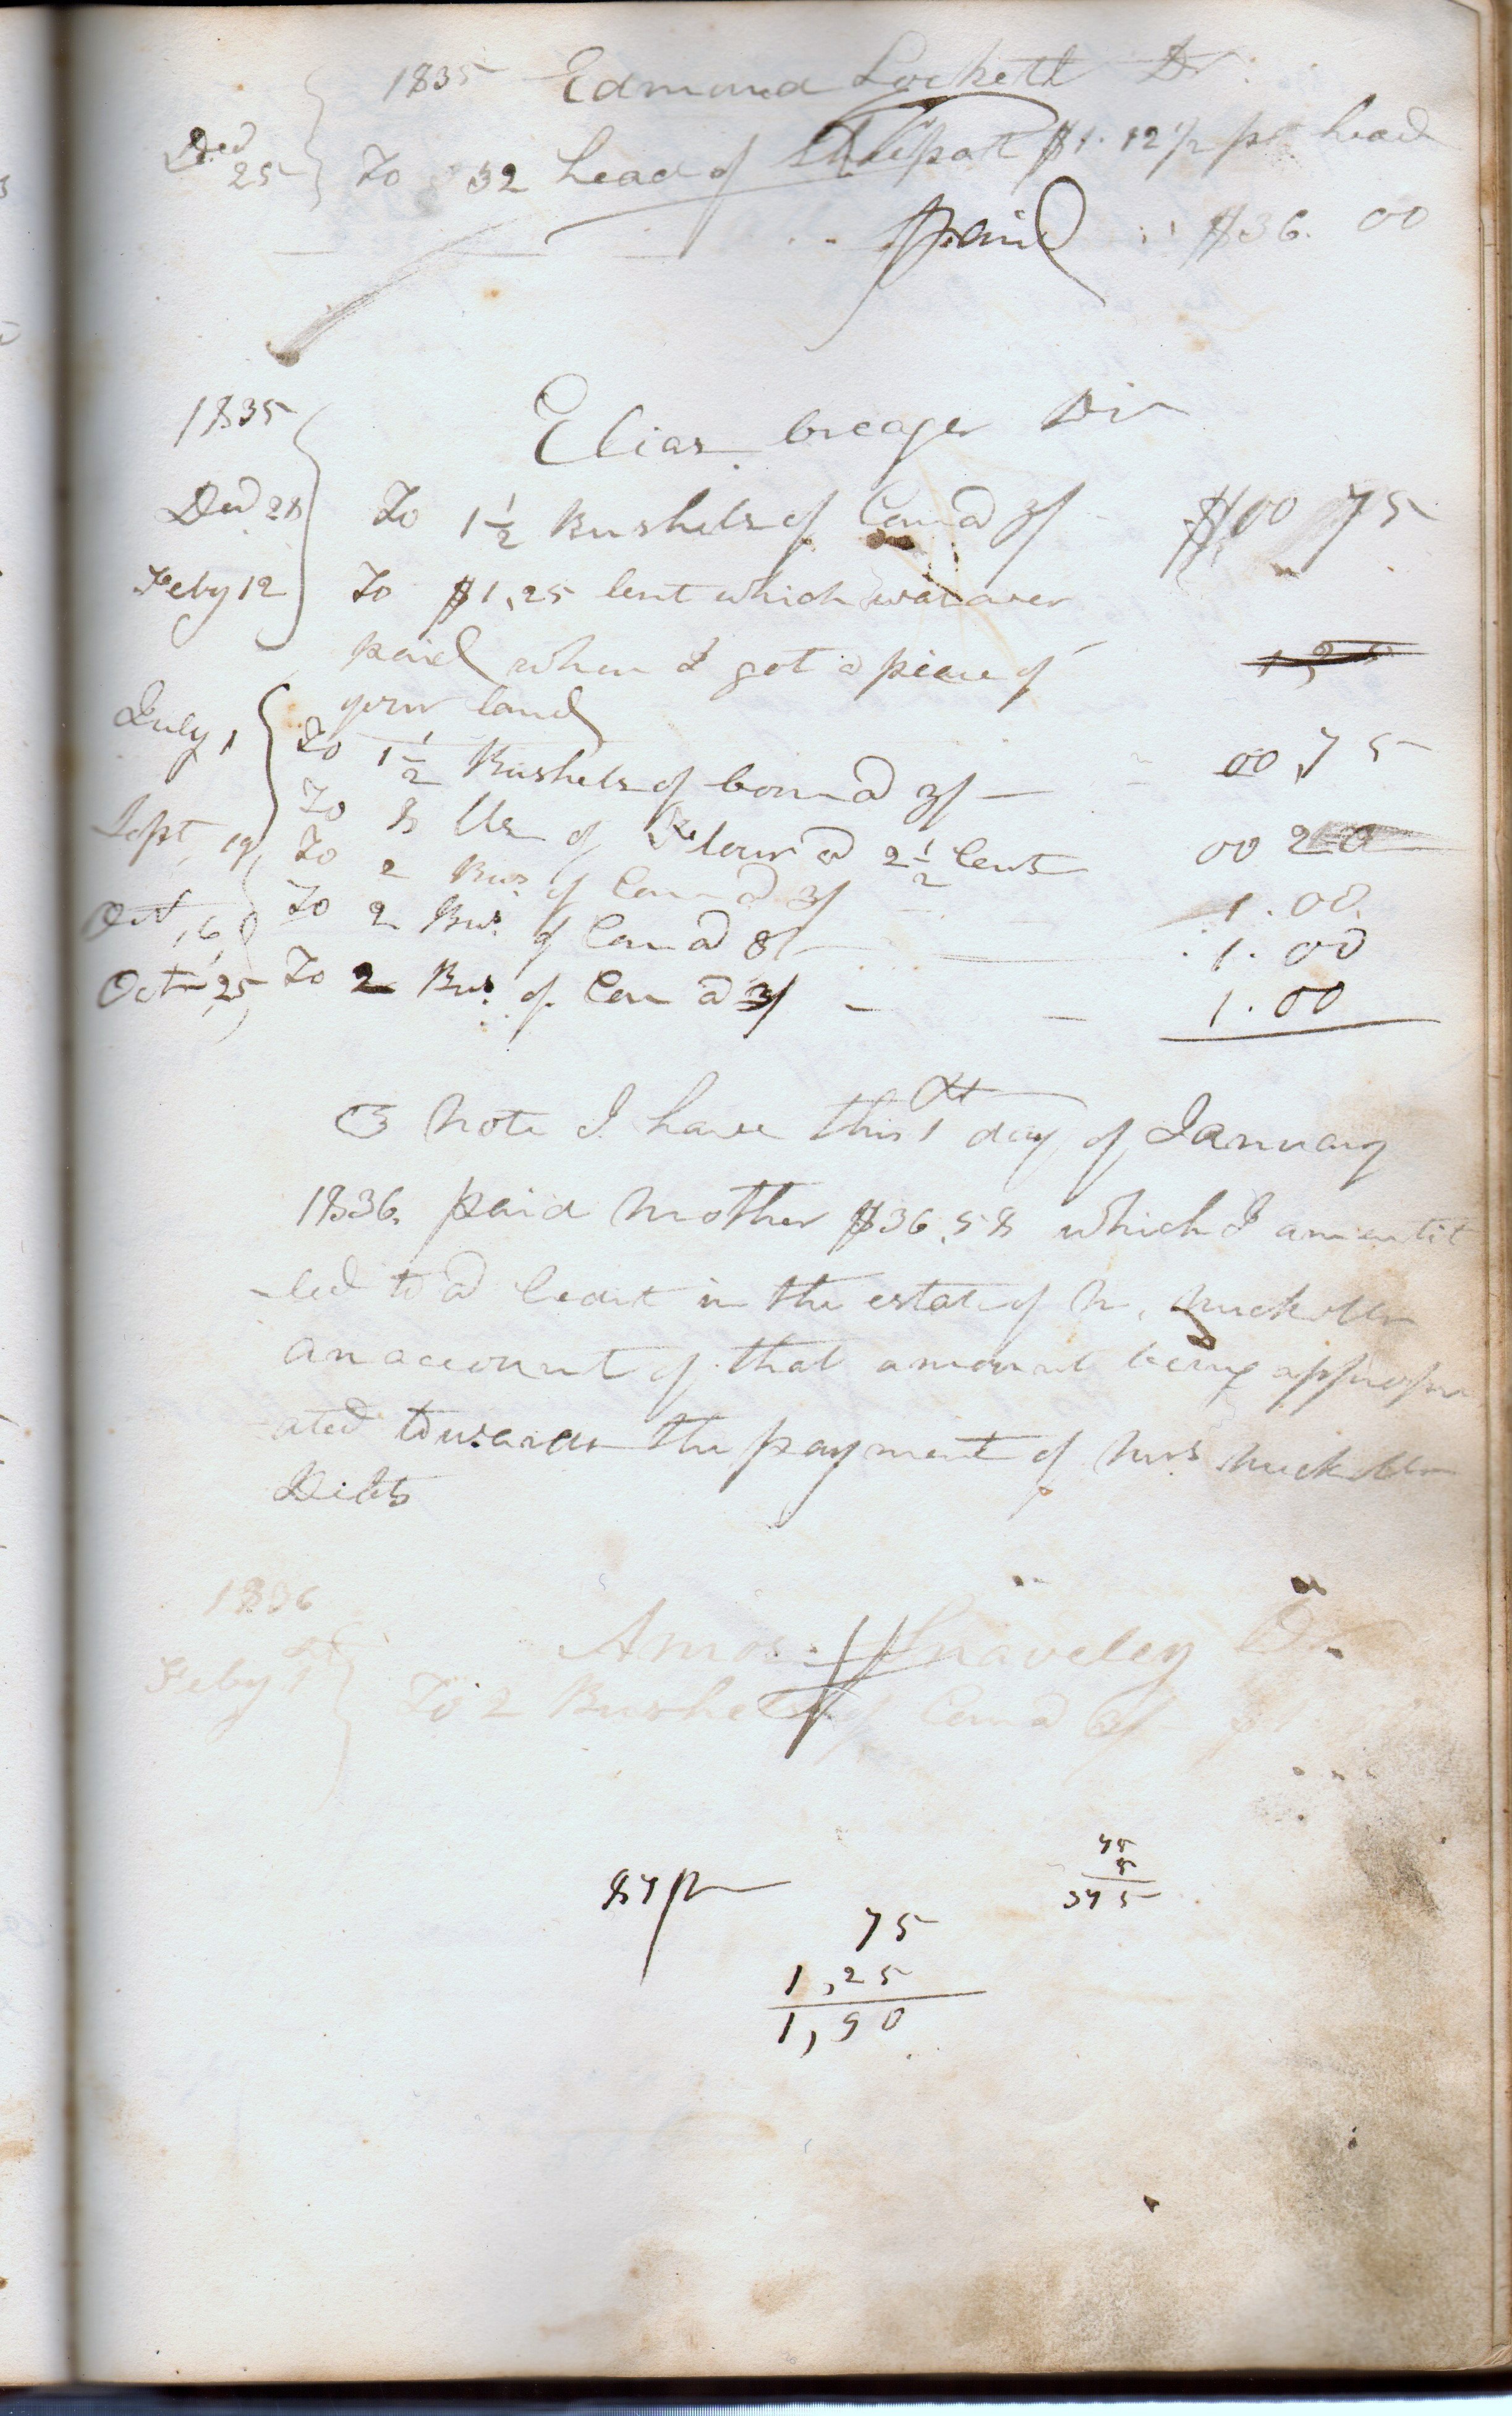 1835 Edmund Lockett Dr.
Decd 25 To 32 head of Sheep at $1.12 1/2 pr head
paid $36.00
1835 Elias creager Dr
Decd 28 To 1 1/2 Bushels of Corn @ 3/ $00 75
Feby 12 To $1,25 lent which was over
paid when I got a piece of 1,25
your land
July 1 To 1 1/2 Bushels of corn @ 3/ 00,75
To 8 lbs of Flour @ 2 1/2 Cents 00 20
Sept, 19 To 2 Bus. of Corn @ 3/ 1.00
Oct, 6 To 2 Bus. of Corn @ 1.00
Octr 25 To 2 Bus. of Corn @ 3/ 1.00
Note I have this 1st day of January
1836. paid Mother $36,58 which I am entit
led to @ least in the estate of N. Nuckolls
an account of that amount being appropri
ated towards the payment of Mrs Nuckolls
Debts
1836
Amos Snaveley Dr.
Feby 1st To 2 Bushels of Corn @ 3/ $1
75
5
375
87
75
1,25
1,90